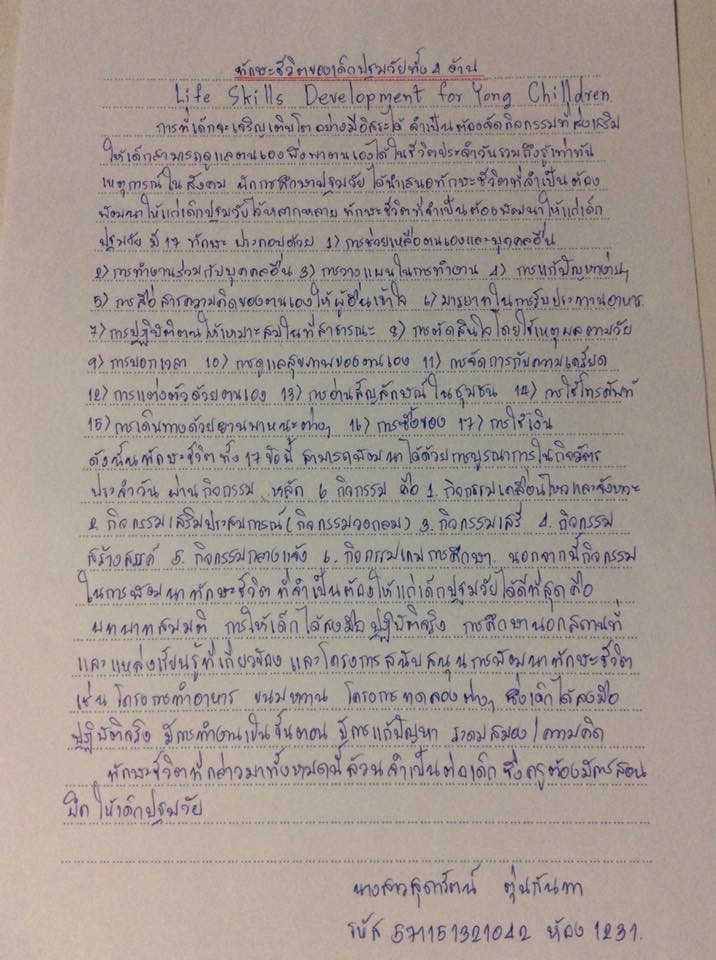 ทักษะชีวิตของเด็กปฐมวัยทั้ง 4 ด้าน
Life Skills Development for Yong Chilldren.
การที่เด็กจะเจริญเติบโตอย่างมีอิสระได้ จำเป็นต้องจัดกิจกรรมที่ส่งเสริม
ให้เด็กสามารถดูแลตนเองพึ่งพาตนเองได้ในชีวิตประจำวันรวมถึงรู้เท่าทัน
เหตุการณ์ในสังคม นักการศึกษาปฐมวัยได้นำเสนอทักษะชีวิตที่จำเป็นต้อง
พัฒนาให้แก่เด็กปฐมวัยไว้หลากหลาย ทักษะชีวิตที่จำเป็นต้องพัฒนาให้แก่เด็ก
ปฐมวัย มี 17 ทักษะ ประกอบด้วย 1) การช่วยเหลือตนเองและบุคคลอื่น
2) การทำงานร่วมกับบุคคลอื่น 3) การวางแผนในการทำงาน 4) การแก้ปัญหาง่ายๆ
5) การสื่อสารความคิดของตนเองให้ผู้อื่นเข้าใจ 6) มารยาทในการรับประทานอาหาร
7) การปฏิบัติตนให้เหมาะสมในที่สาธารณะ 8) การตัดสินใจโดยใช้เหตุผลตามวัย
9) การบอกเวลา 10) การดูแลสุขภาพของตนเอง 11) การจัดการกับความเครียด
12) การแต่งตัวด้วยตนเอง 13) การอ่านสัญลักษณ์ในชุมชน 14) การใช้โทรศัพท์
15) การเดินทางด้วยยานพาหนะต่างๆ 16) การซื้อของ 17) การใช้เงิน
ดังนั้นทักษะชีวิตทั้ง 17 ข้อนี้ สามารถพัฒนาได้ด้วยการบูรณาการในกิจวัตร
ประจำวัน ผ่านกิจกรรม หลัก 6 กิจกรรม คือ 1. กิจกรรมเคลื่อนไหวและจังหวะ
2. กิจกรรมเสริมประสบการณ์ (กิจกรรมวงกลม) 3. กิจกรรมเสรี 4. กิจกรรม
สร้างสรรค์ 5. กิจกรรมกลางแจ้ง 6. กิจกรรมเกมการศึกษา. นอกจากนี้กิจกรรม
ในการพัฒนาทักษะชีวิต ที่จำเป็นต้องให้แก่เด็กปฐมวัยได้ดีที่สุด คือ
บทบาทสมมติ การให้เด็กได้ลงมือปฏิบัติจริง การศึกษานอกสถานที่
และแหล่งเรียนรู้ที่เกี่ยวข้อง และโครงการสนับสนุนการพัฒนาทักษะชีวิต
เช่น โครงการทำอาหาร ขนมหวาน โครงการทดลองต่างๆ ซึ่งเด็กได้ลงมือ
ปฏิบัติจริง มีการทำงานเป็นขั้นตอน มีการแก้ปัญหา ระดมสมอง/ความคิด
ทักษะชีวิตที่กล่าวมาทั้งหมดนี้ล้วนจำเป็นต่อเด็ก ซึ่งครูต้องมีการสอน
ฝึก ให้เด็กปฐมวัย
นางสาวสุดารัตน์
รหัส 571151321042 ห้อง 1231.